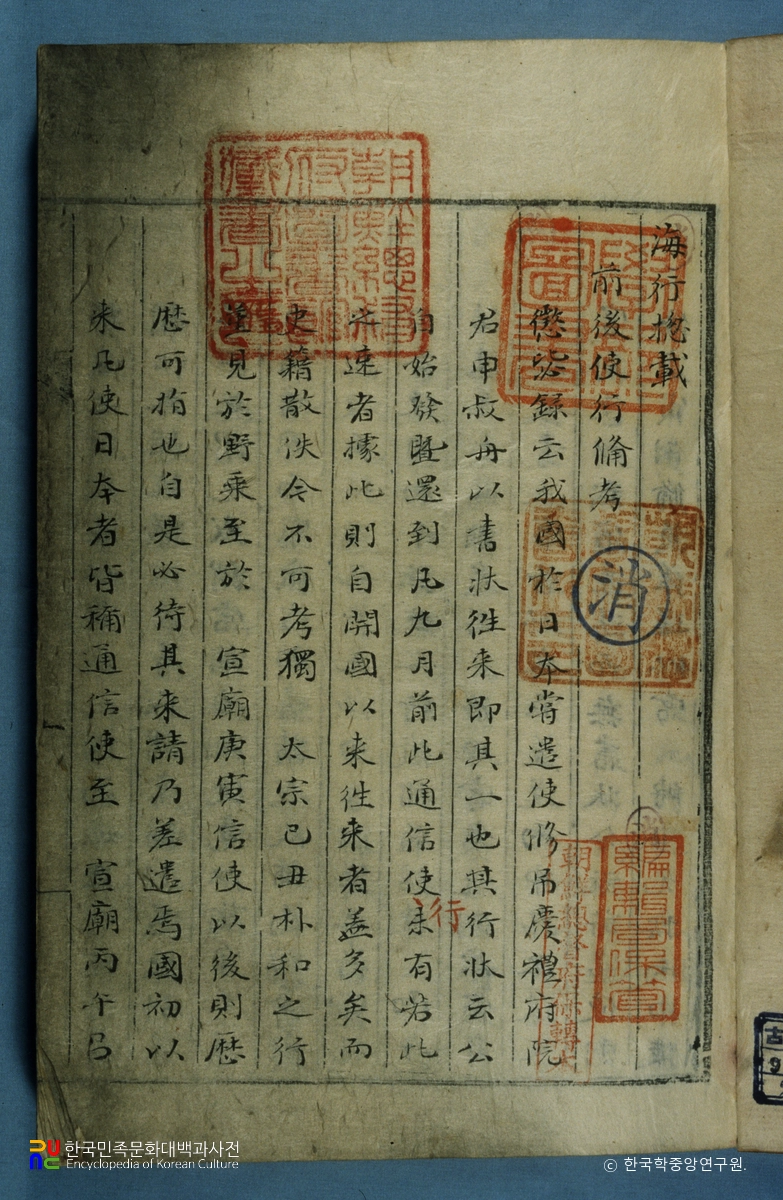 海行摠載
前後使行備考
懲毖錄云我國於日本嘗遣使修吊慶禮府院
君申叔舟以書狀徃来即其一也其行狀云公
自始發曁還到凡九月前此通信使行未有若此
先速者據此則自開國以来徃来者盖多矣而
史籍散佚今不可考獨 太宗己丑朴和之行
見於野乘至於 宣廟庚寅信使以後則歷
歷可指也自是必待其来請乃差遣焉國初以
来凡使日本者皆稱通信使至 宣廟丙午呂
消
古
9
한국민족문화대백과사전
Encyclopedia of Korean Culture
ⓒ 한국학중앙연구원.